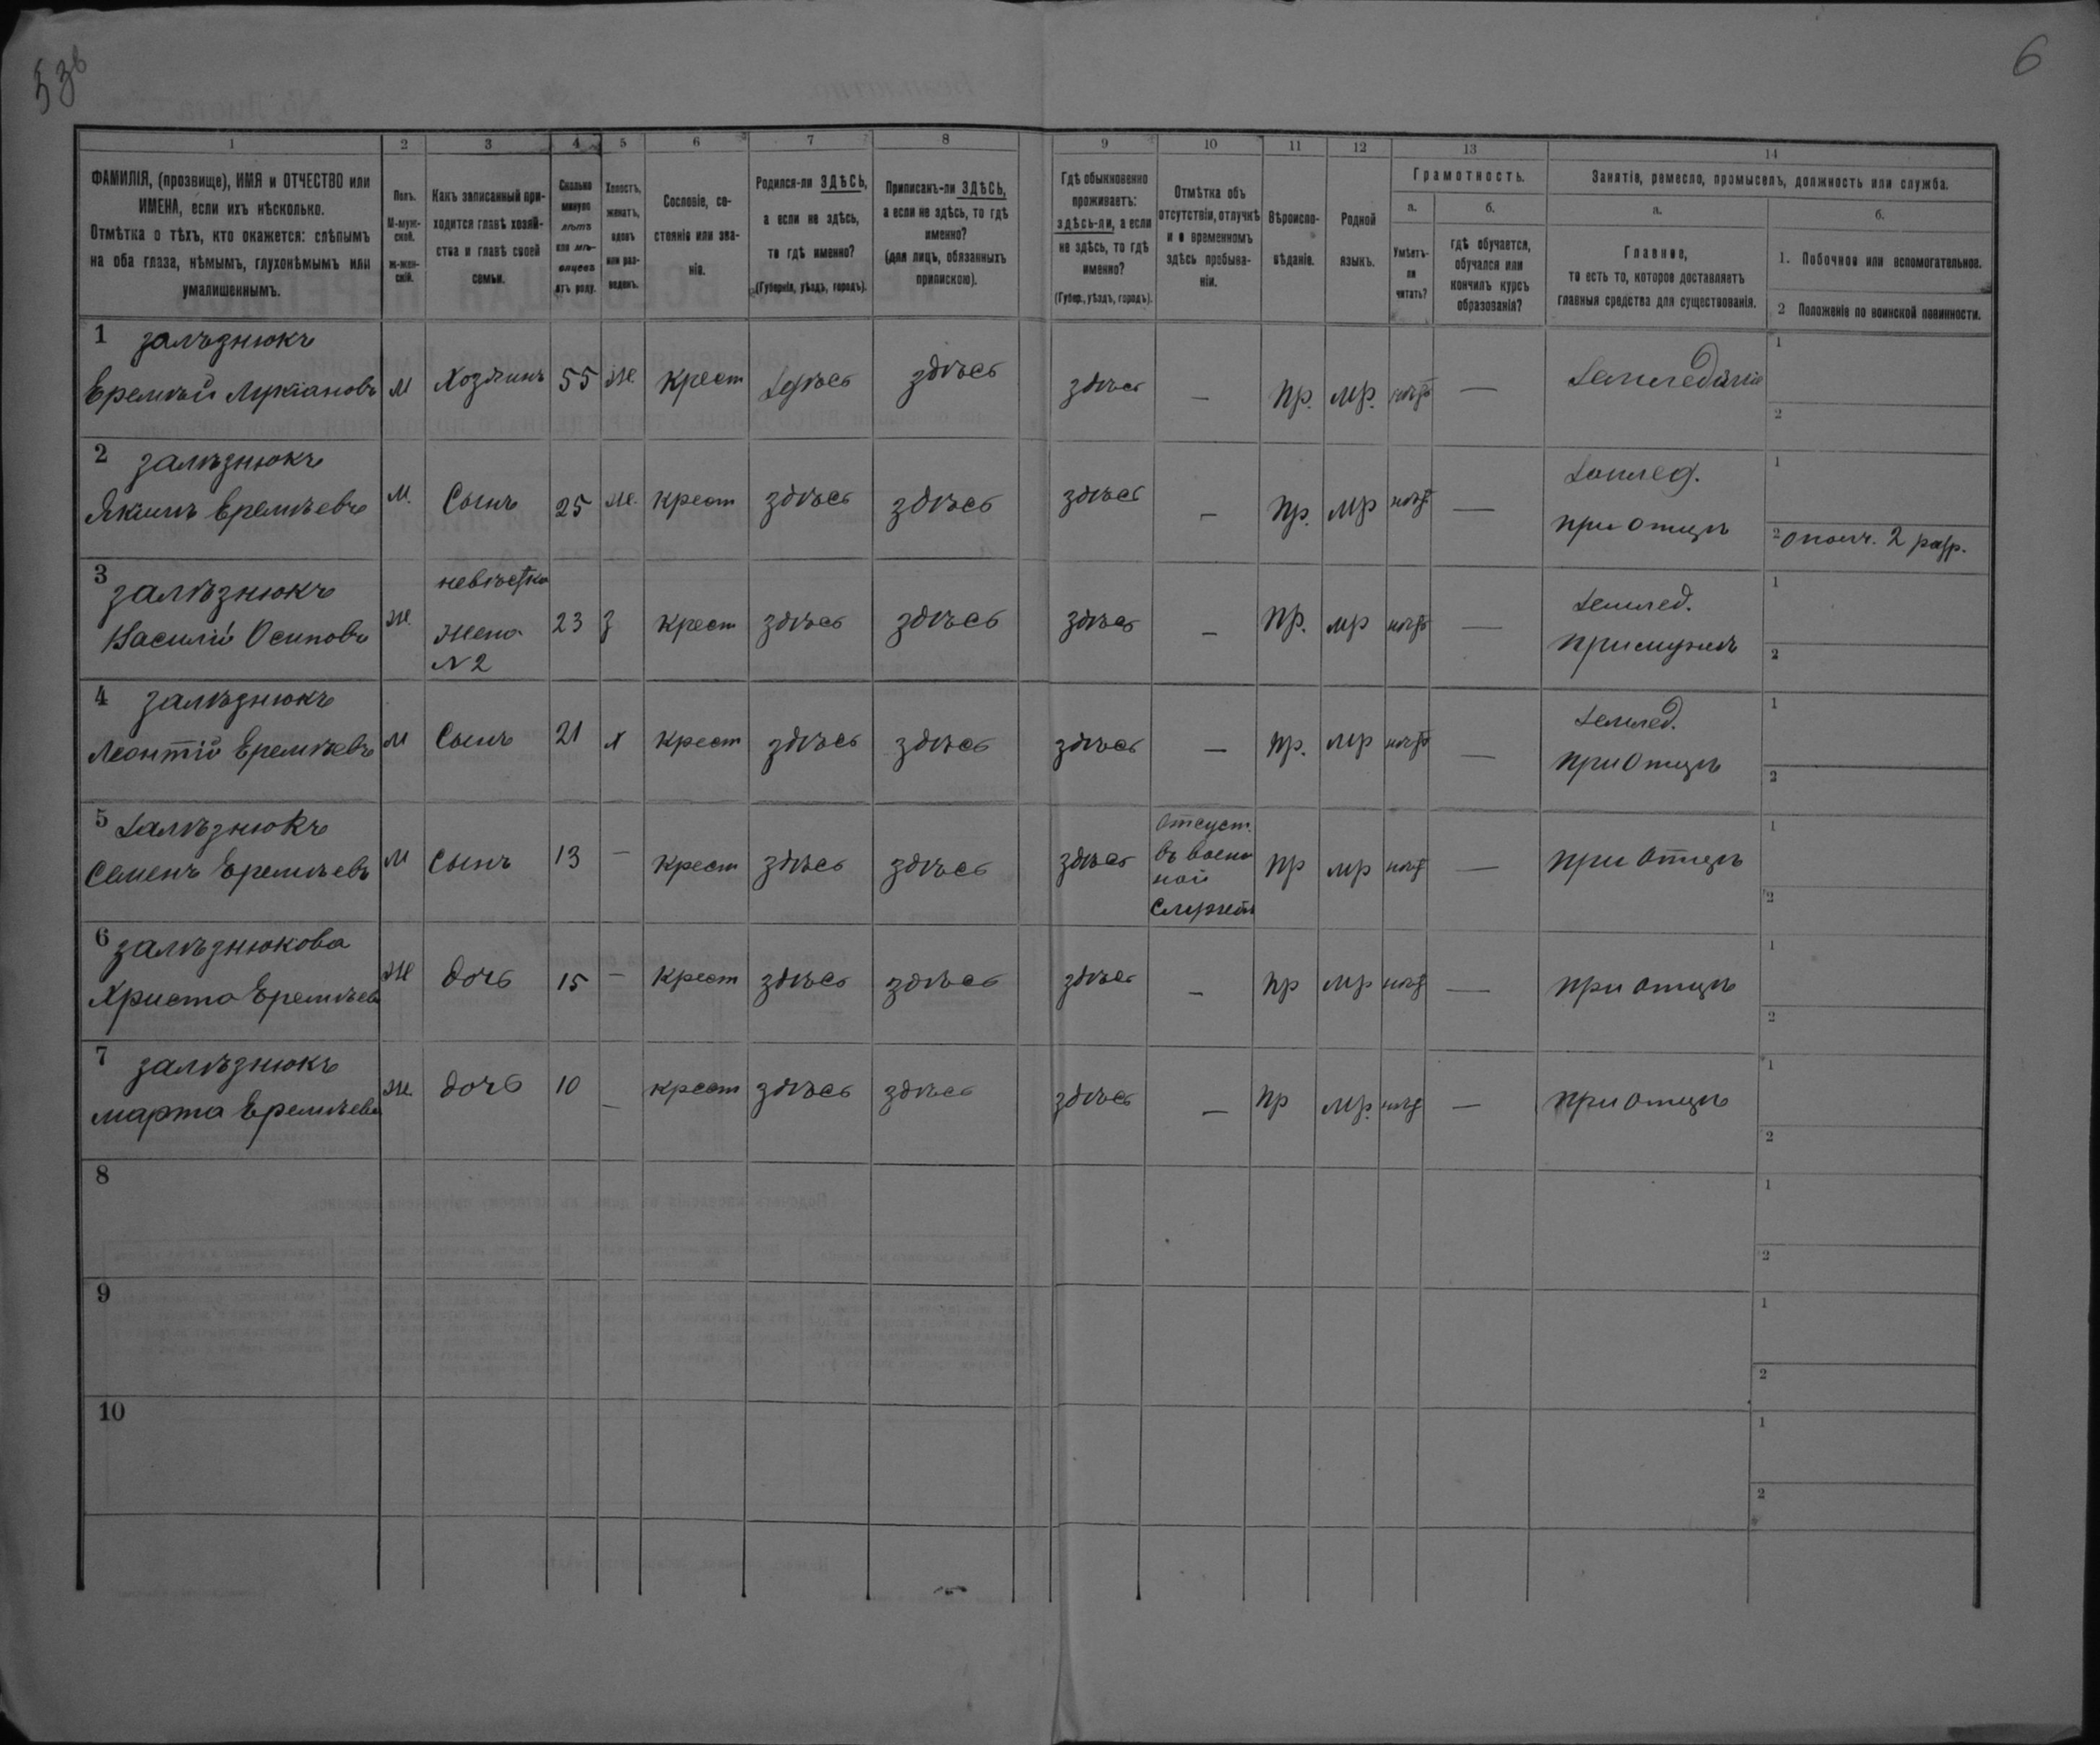 53б
6
1 2 3 4 5 6 7 8 9 10 11 12 13 14
ФАМИЛІЯ, (прозвище), ИМЯ и ОТЧЕСТВО или
ИМЕНА, если ихъ нѣсколько.
Отмѣтка о тѣхъ, кто окажется: слѣпымъ
на оба глаза, нѣмымъ, глухонѣмымъ или
умалишеннымъ.
Полъ.
М-муж-
ской.
ж-жен-
скій.
Какъ записанный при-
ходится главѣ хозяй-
ства и главѣ своей
семьи.
Сколько
минуло
лѣтъ
или мѣ-
сяцевъ
отъ роду.
Холостъ,
женатъ,
вдовъ
или раз-
веденъ.
Сословіе, со-
стояніе или зва-
ніе.
Родился-ли ЗДѢСЬ,
а если не здѣсь,
то гдѣ именно?
(Губернія, уѣздъ, городъ).
Приписанъ-ли ЗДѢСЬ,
а если не здѣсь, то гдѣ
именно?
(для лицъ, обязанныхъ
припискою).
Гдѣ обыкновенно
проживаетъ:
здѣсь-ли, а если
не здѣсь, то гдѣ
именно?
(Губер., уѣздъ, городъ).
Отмѣтка объ
отсутствіи, отлучкѣ
и о временномъ
здѣсь пребыва-
ніи.
Вѣроиспо-
вѣданіе.
Родной
языкъ.
Грамотность.
а.
Умѣетъ-
ли
читать?
б.
гдѣ обучается,
обучался или
кончилъ курсъ
образованія?
Занятіе, ремесло, промыселъ, должность или служба.
а.
Главное,
то есть то, которое доставляетъ
главныя средства для существованія.
б.
1. Побочное или вспомогательное.
2 Положеніе по воинской повинности.
1 залѣзнюкъ
Еремѣй Лукіановъ м Хозяинъ 55 ж. крест здѣсь здѣсь здѣсь — пр. мр. нѣтъ — земледѣліе 1
2
2 залѣзнюкъ
Якимъ Еремѣевъ м. Сынъ 25 ж. крест здѣсь здѣсь здѣсь — пр. мр нѣт — землед. 1
при отцѣ 2 ополч. 2 разр.
3 залѣзнюкъ невѣстка
Василій Осиповъ ж. жена 23 з крест здѣсь здѣсь здѣсь — пр. мр нѣтъ — землед. 1
№ 2 при мужѣ 2
4 залѣзнюкъ
Леонтій Еремѣевъ м Сынъ 21 х крест здѣсь здѣсь здѣсь — пр. мр нѣтъ — землед. 1
при отцѣ 2
5 залѣзнюкъ
Семенъ Еремѣевъ м сынъ 13 — крест здѣсь здѣсь здѣсь отсуст. пр мр нѣт — при отцѣ 1
въ воен
ной
службѣ 2
6 залѣзнюкова
Христа Еремѣева ж дочь 15 — крест здѣсь здѣсь здѣсь — пр мр нѣт — при отцѣ 1
2
7 залѣзнюкъ
марта Еремѣева ж. дочь 10 — крест здѣсь здѣсь здѣсь — пр мр. нѣт — при отцѣ 1
2
8 1
2
9 1
2
10 1
2